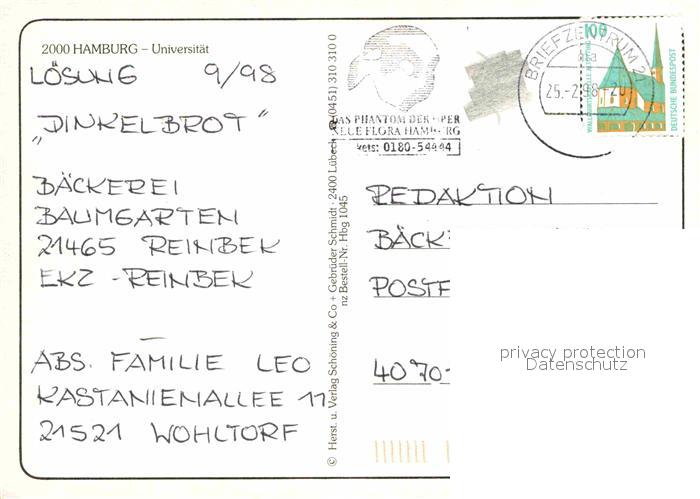 2000 HAMBURG – Universität
LÖSUNG 9/98
„DINKELBROT"
BÄCKEREI
BAUMGARTEN
21465 REINBEK
EKZ - REINBEK
ABS. FAMILIE LEO
KASTANIENALLEE 11
21521 WOHLTORF
© Herst. u. Verlag Schöning & Co + Gebrüder Schmidt · 2400 Lübeck (0451) 310 310 0
Bestell-Nr. Hbg 1045
DAS PHANTOM DER OPER
NEUE FLORA HAMBURG
0180-54444
BRIEFZENTRUM 21
25.-2.98-20
100
DEUTSCHE BUNDESPOST
REDAKTION
BÄCK
POSTF
4070-
privacy protection
Datenschutz